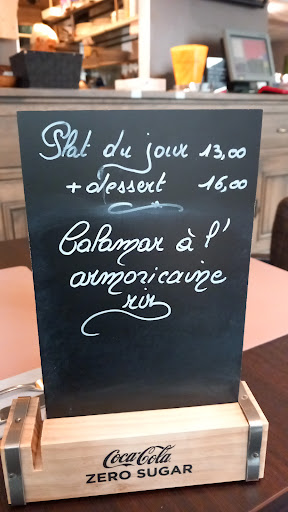 Plat du jour 13,00
+ dessert 16,00
Calamar à l'
armoricaine
riz
Coca-Cola
ZERO SUGAR